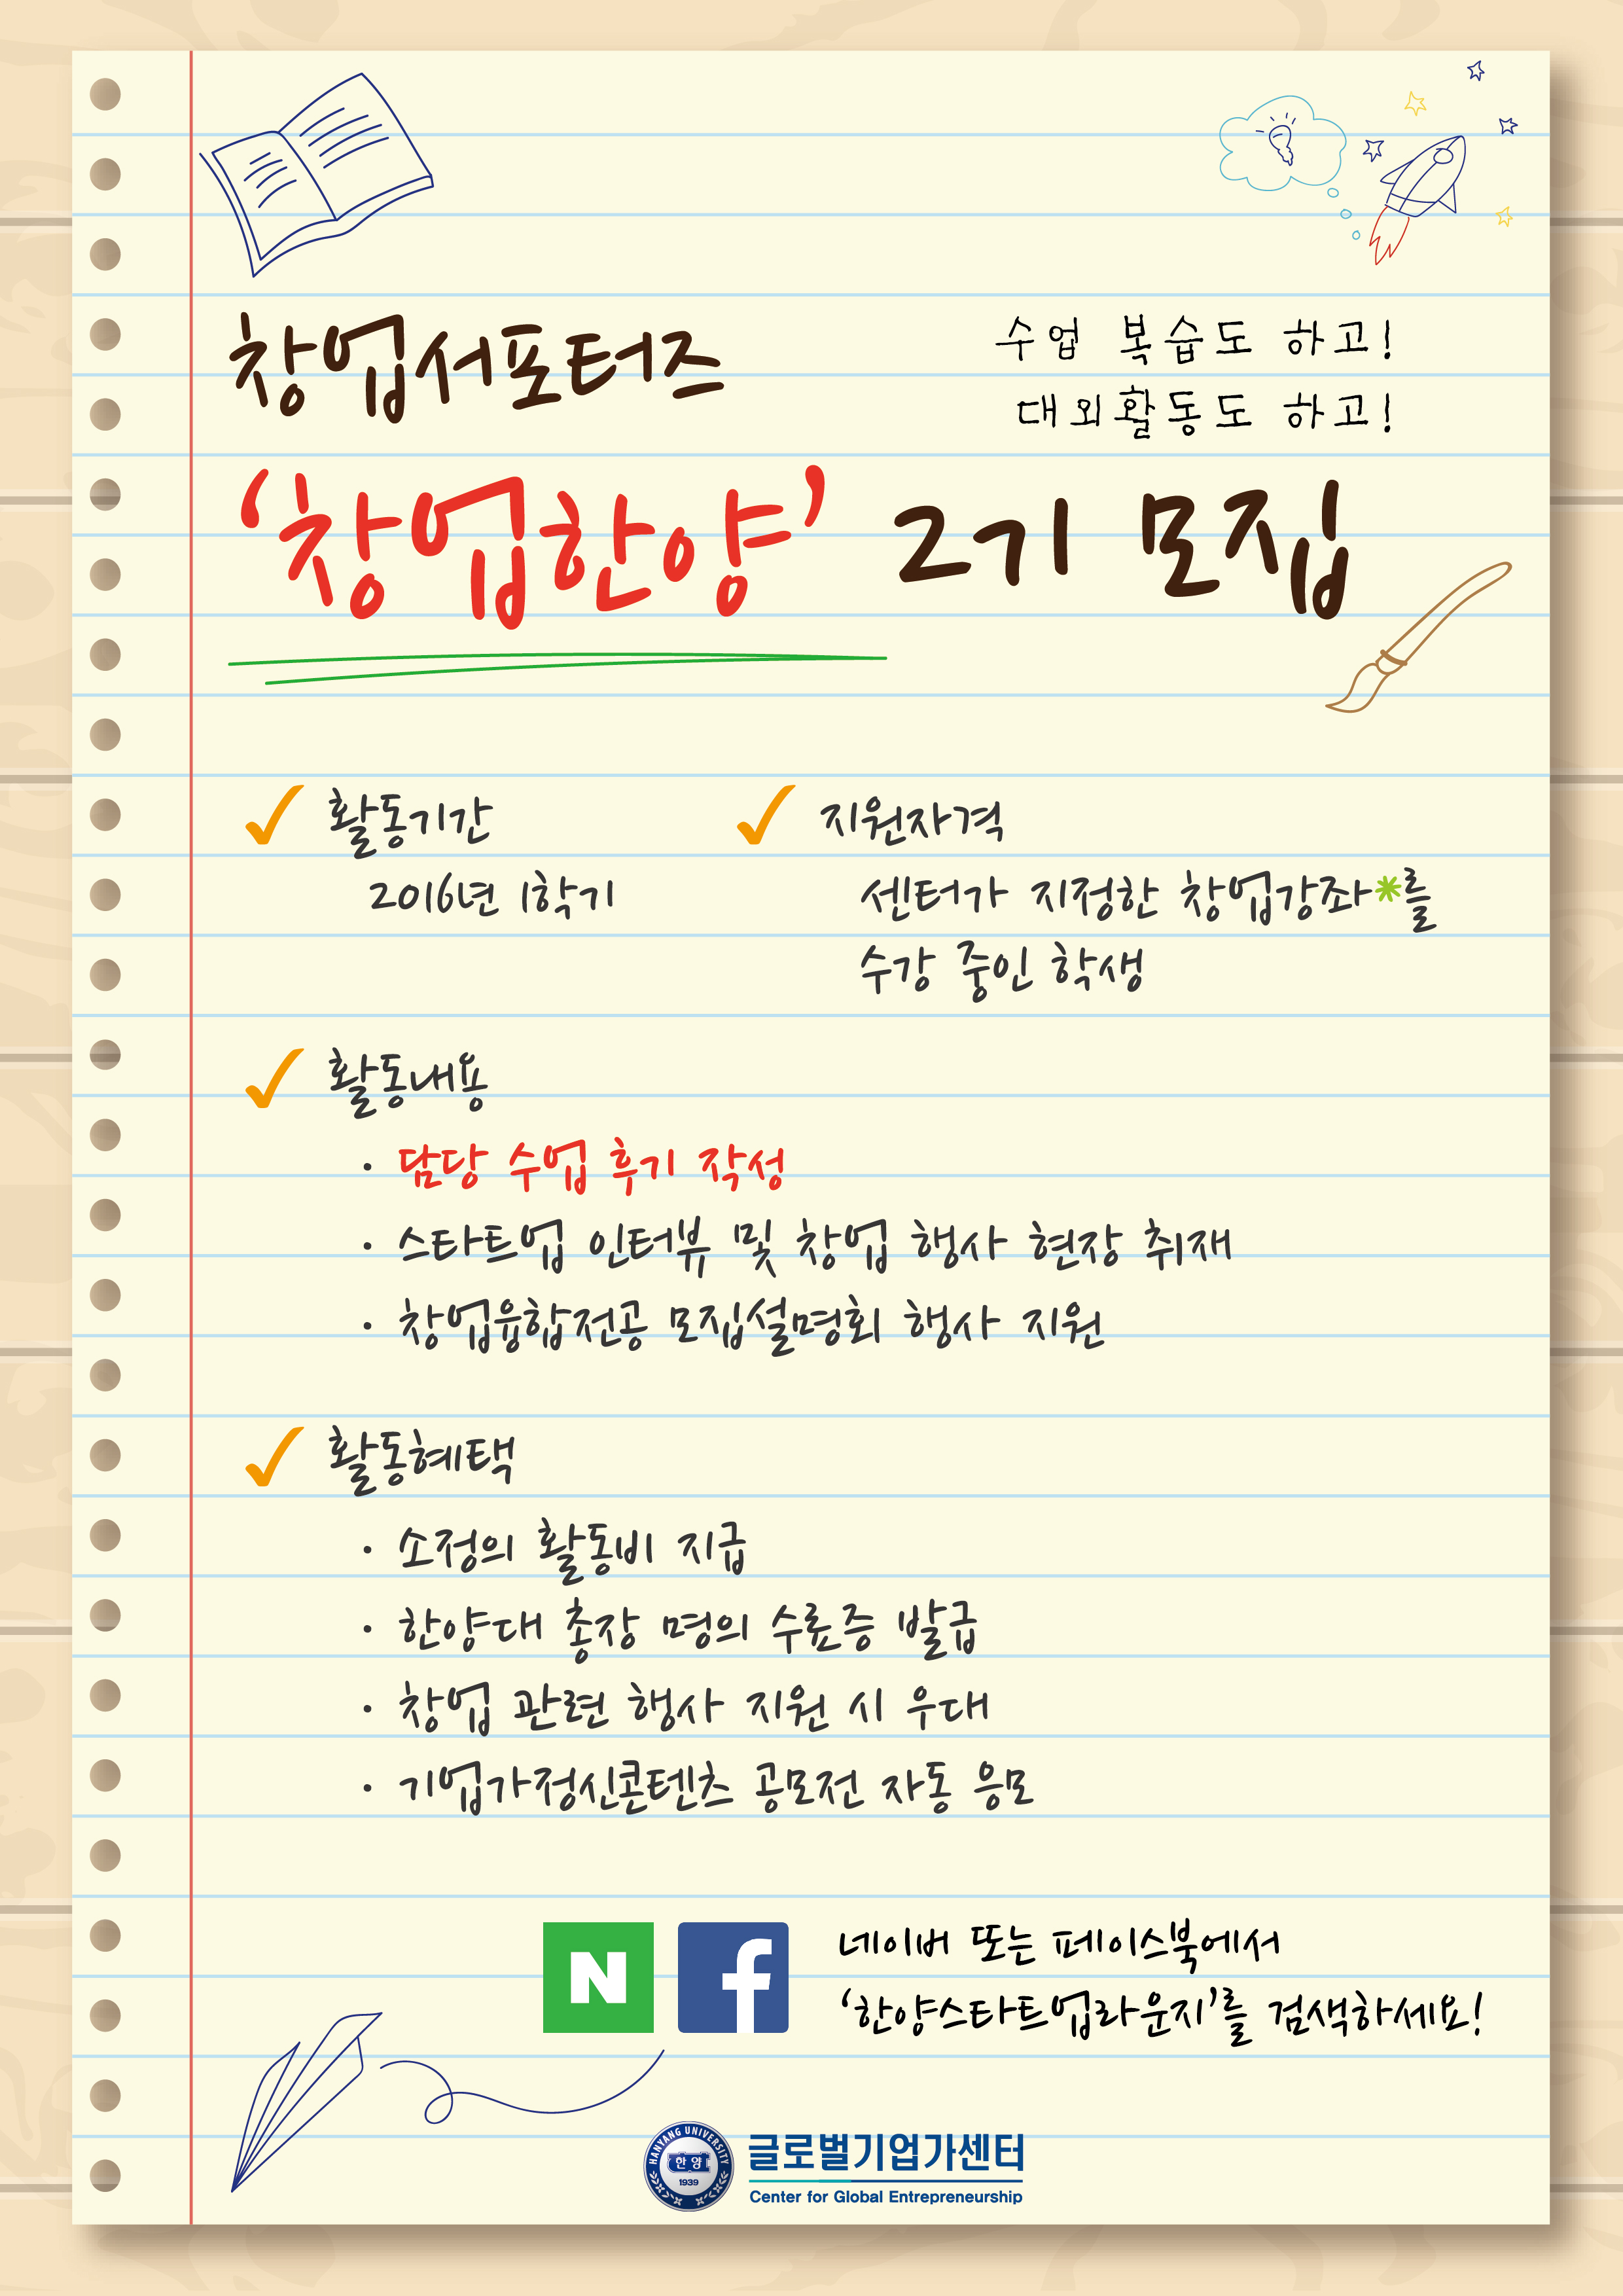 창업서포터즈
수업 복습도 하고!
대외활동도 하고!
‘창업한양’ 2기 모집
활동기간
2016년 1학기
지원자격
센터가 지정한 창업강좌*를
수강 중인 학생
활동내용
· 담당 수업 후기 작성
· 스타트업 인터뷰 및 창업 행사 현장 취재
· 창업융합전공 모집설명회 행사 지원
활동혜택
· 소정의 활동비 지급
· 한양대 총장 명의 수료증 발급
· 창업 관련 행사 지원 시 우대
· 기업가정신콘텐츠 공모전 자동 응모
N f
네이버 또는 페이스북에서
‘한양스타트업라운지’를 검색하세요!
HANYANG UNIVERSITY
한양
1939
글로벌기업가센터
Center for Global Entrepreneurship